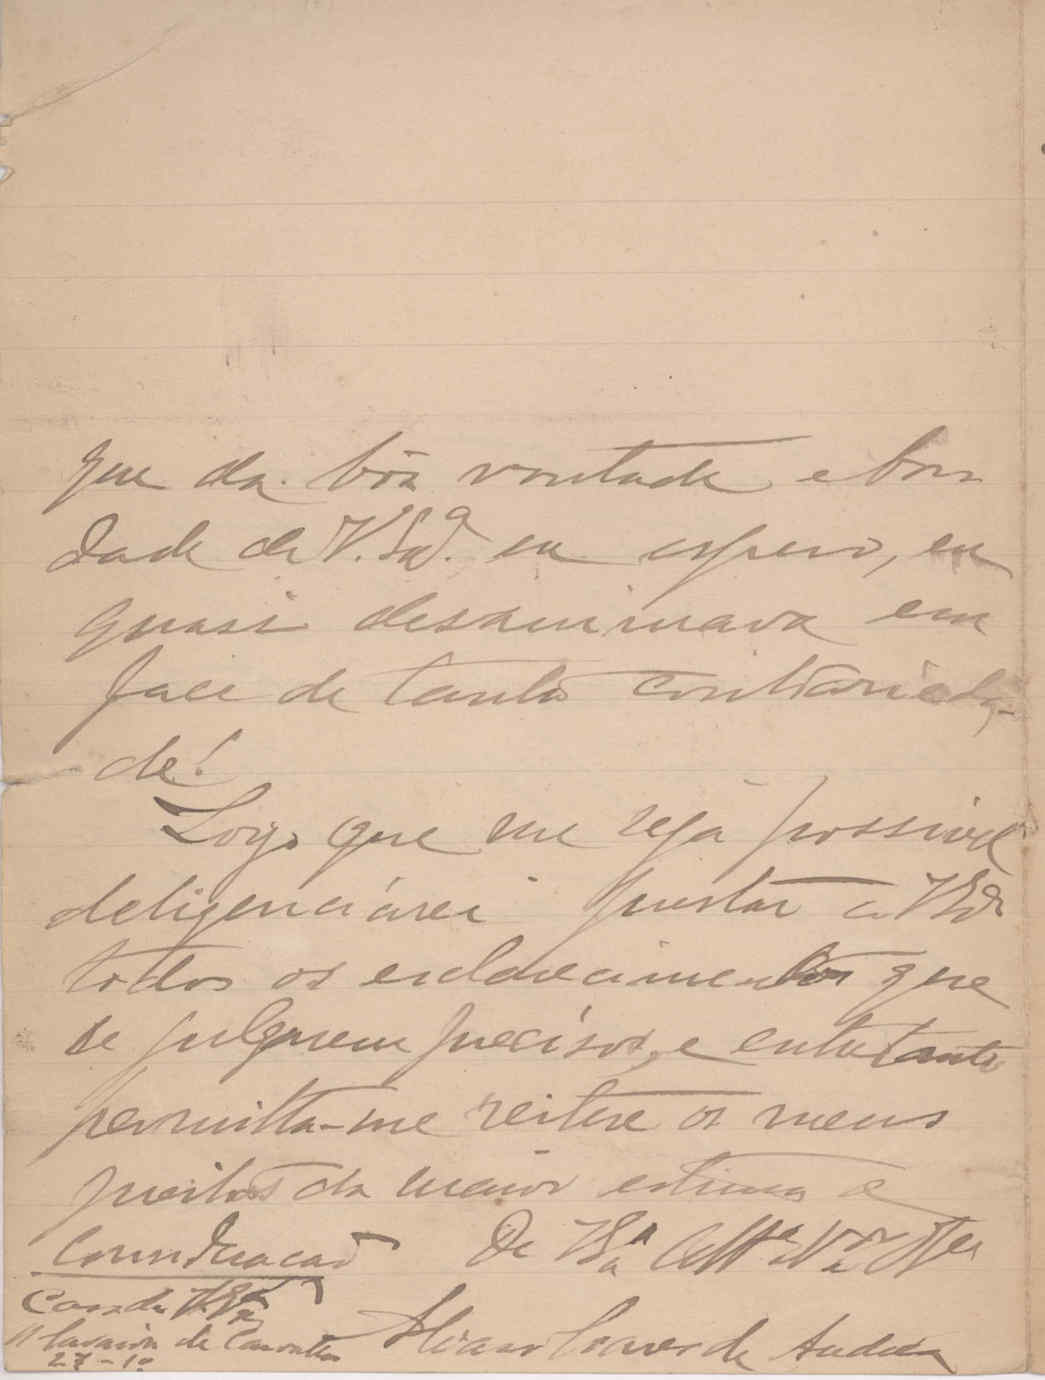 que da bôa vontade e bon
dade de V. Sª. eu espero, eu
quasi desanimava em
face de tanta contrarieda-
de!
Logo que me seja possivel
deligenciárei prestar a V Sª
todos os esclarecimentos que
se julguem precisos, e entretanto
permitta-me reitere os meus
preitos da maior estima e
Consideracaõ De V Sª
Casa de V. Sª
de
27-1º Soares de Andrea